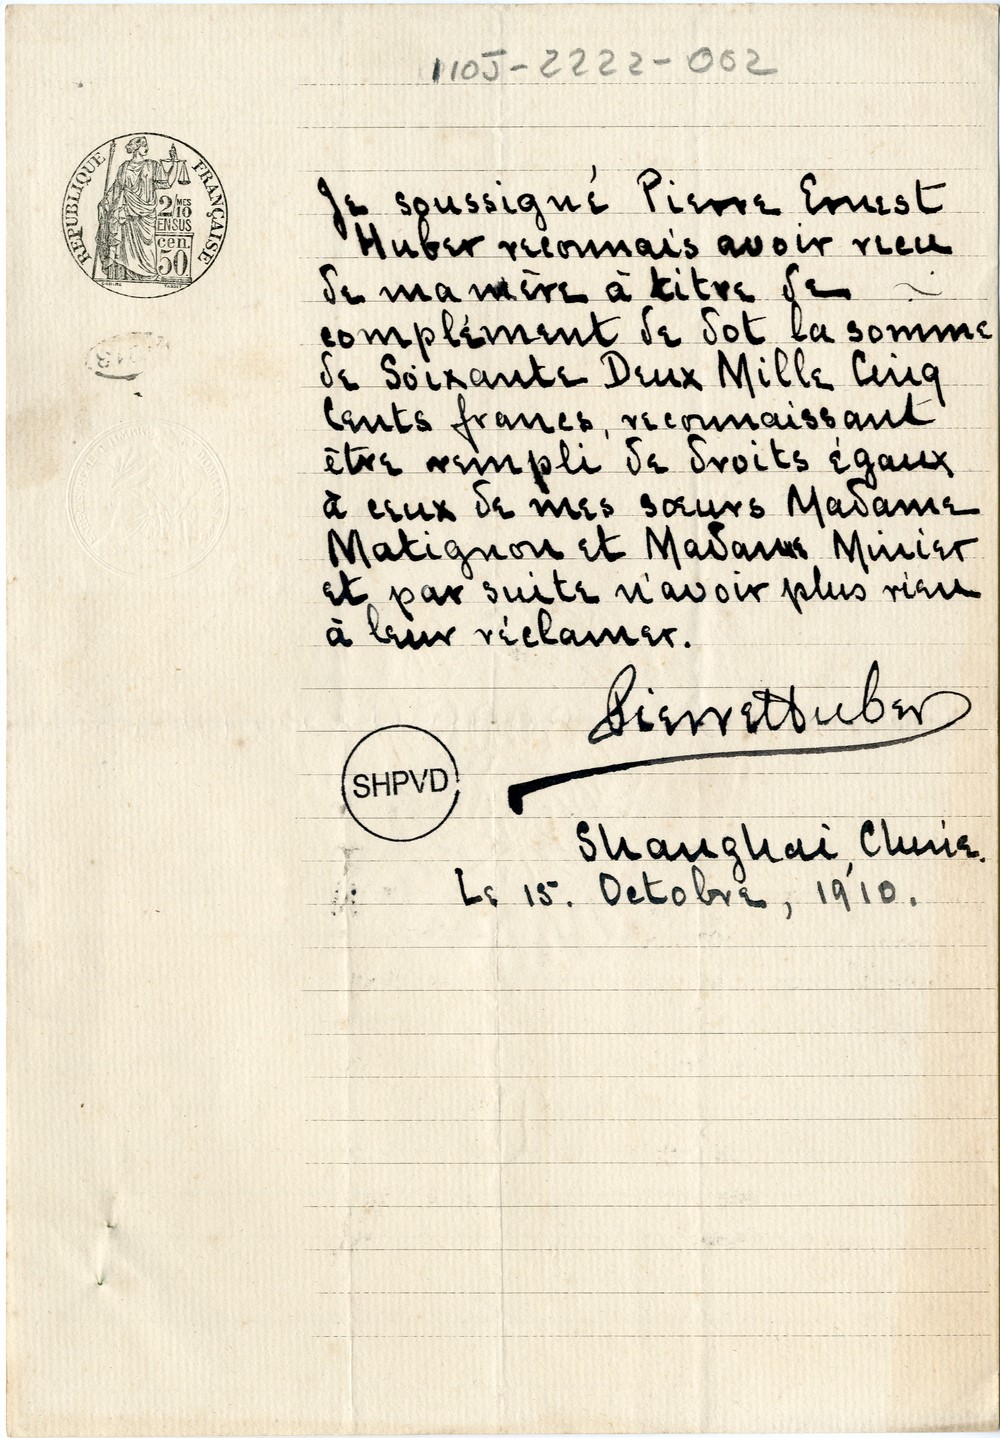 110J-2222-002
RÉPUBLIQUE FRANÇAISE
2/MES
10
EN SUS
cen.
50
Je soussigné Pierre Ernest
Huber reconnais avoir recu
de ma mère à titre de
complément de dot la somme
de Soixante Deux Mille Cinq
Cents francs, reconnaissant
être rempli de droits égaux
à ceux de mes sœurs Madame
Matignon et Madame Minier
et par suite n'avoir plus rien
à leur réclamer.
Pierre Huber
SHPVD
Shanghai, Chine.
Le 15. Octobre, 1910.